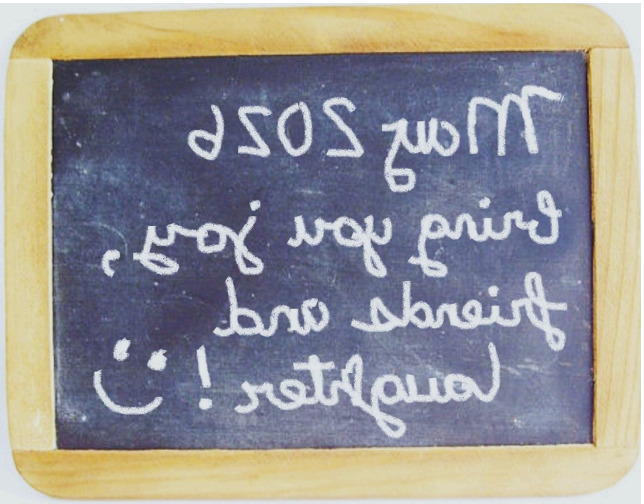 May 2026
bring you joy,
friends and
laughter! :)